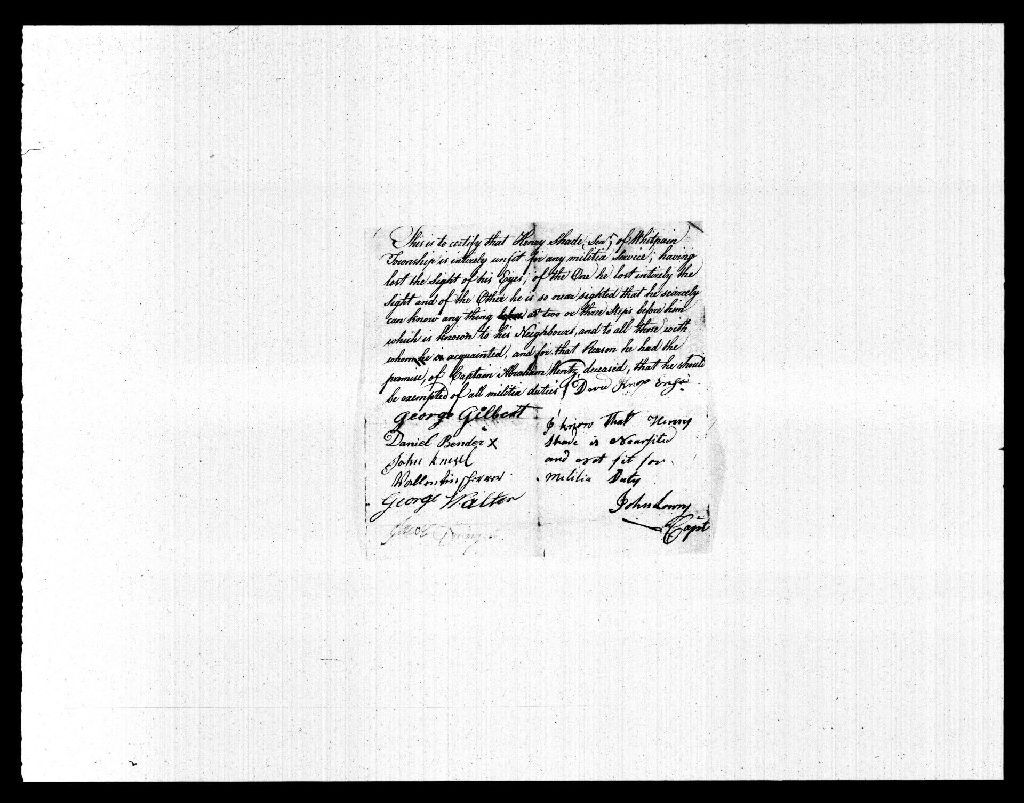 This is to certify that Henry Shade, Senr, of Whitpain
Township is intirely unfit for any militia Service; having
lost the Sight of his Eyes, of the One he lost intirely the
Sight and of the Other he is so near sighted that he scincely
can know any thing at two or three Steps before him
which is known to his Neighbours, and to all those with
whom he is acquainted, and for that Reason he had the
promise, of Captain Abraham Wentz, deceased, that he should
be exempted of all militia duties
George Gilbert
Daniel Bender x
John
George Walton
Jacob
I know that Henry
Shade is Nearsited
and not fit for
Militia Duty
John Lowry
Capt